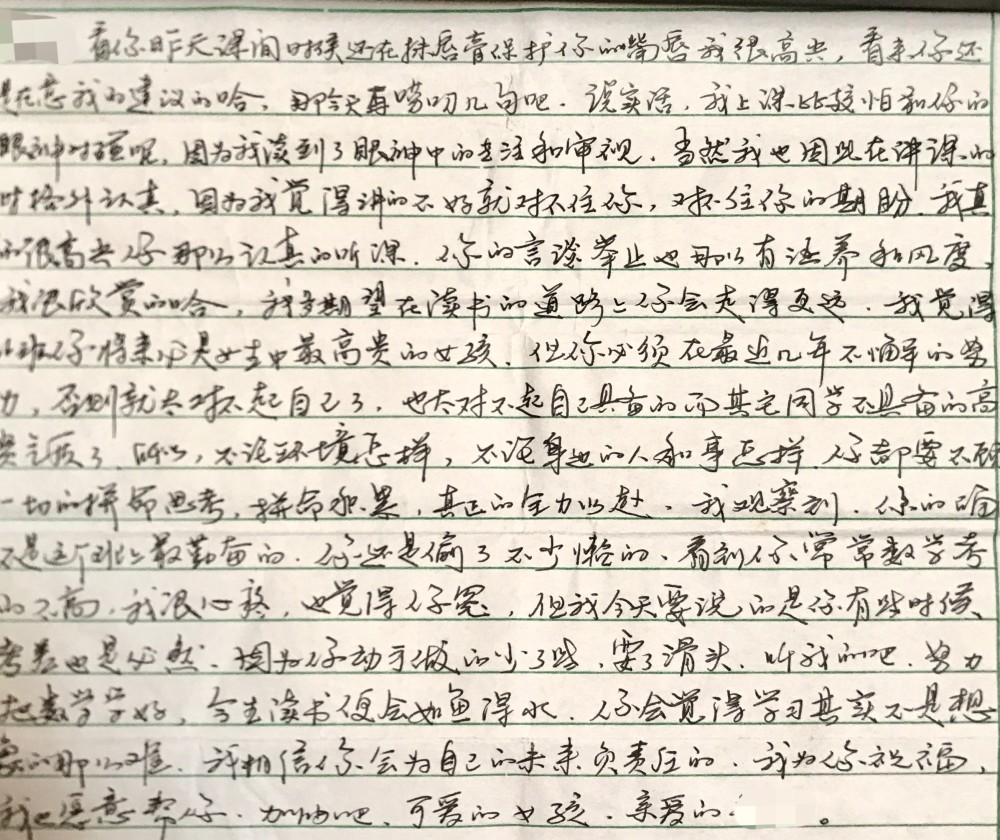 看你昨天课间时候还在抹唇膏保护你的嘴唇我很高兴，看来你还
是在意我的建议的哈，那今天再唠叨几句吧．说实话，我上课比较怕和你的
眼神对碰呢，因为我读到了眼神中的专注和审视．当然我也因此在讲课的
时格外认真，因为我觉得讲的不好就对不住你，对不住你的期盼．我真
的很高兴你那么认真的听课．你的言谈举止也那么有涵养和风度，
我很欣赏的哈，我多期望在读书的道路上你会走得更远．我觉得
班你将来必是女生中最高贵的女孩．但你必须在最近几年不懈的努
力，否则就太对不起自己了．也太对不起自己具备的而其它同学不具备的高
贵气质了．所以，不论环境怎样，不论身边的人和事怎样．你都要不顾
一切的拼命思考，拼命积累，真正的全力以赴．我观察到．你的确
不是这个班上最勤奋的．你还是偷了不少懒的．看到你常常数学考
的不高．我很心疼，也觉得你冤，但我今天要说的是你有些时候
考差也是必然．因为你动手做的少了些，耍了滑头．听我的吧．努力
把数学学好，今生读书便会如鱼得水．你会觉得学习其实不是想
象的那么难．我相信你会为自己的未来负责任的．我为你祝福，
我也愿意帮你．加油吧．可爱的女孩．亲爱的 。